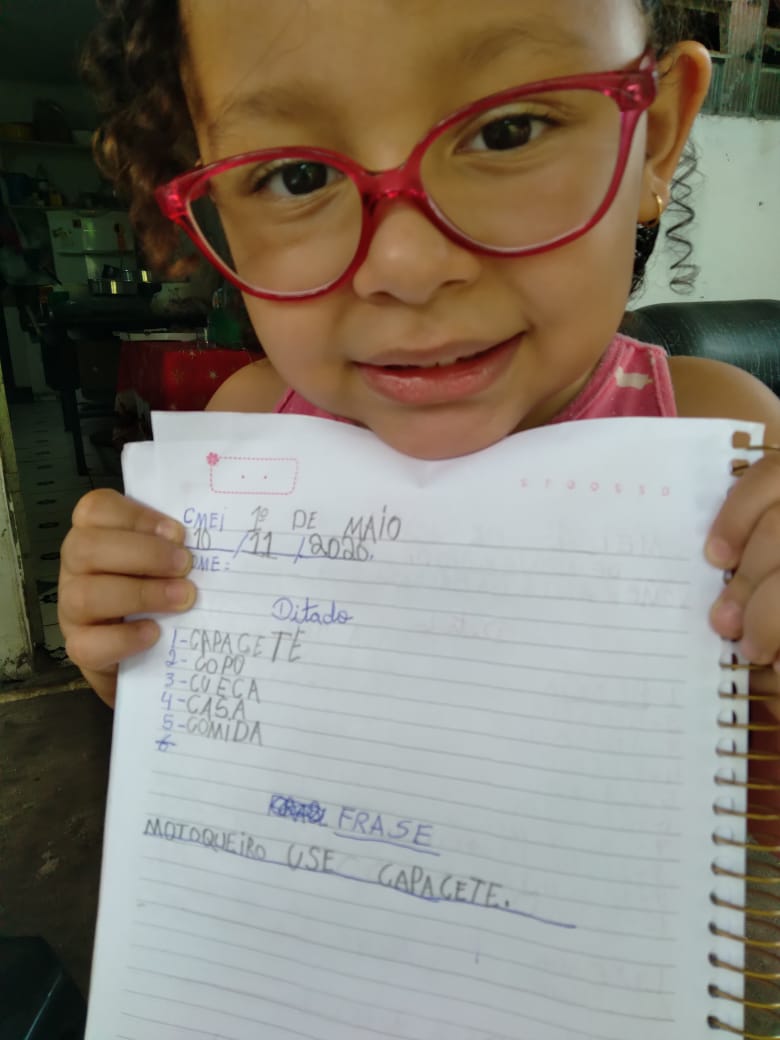 CMEI 1º DE MAIO
10/11/2020.
OME:
Ditado
1-CAPACETE
2-COPO
3-CUECA
4-CASA
5-COMIDA
6
FRASE
MOTOQUEIRO USE CAPACETE.